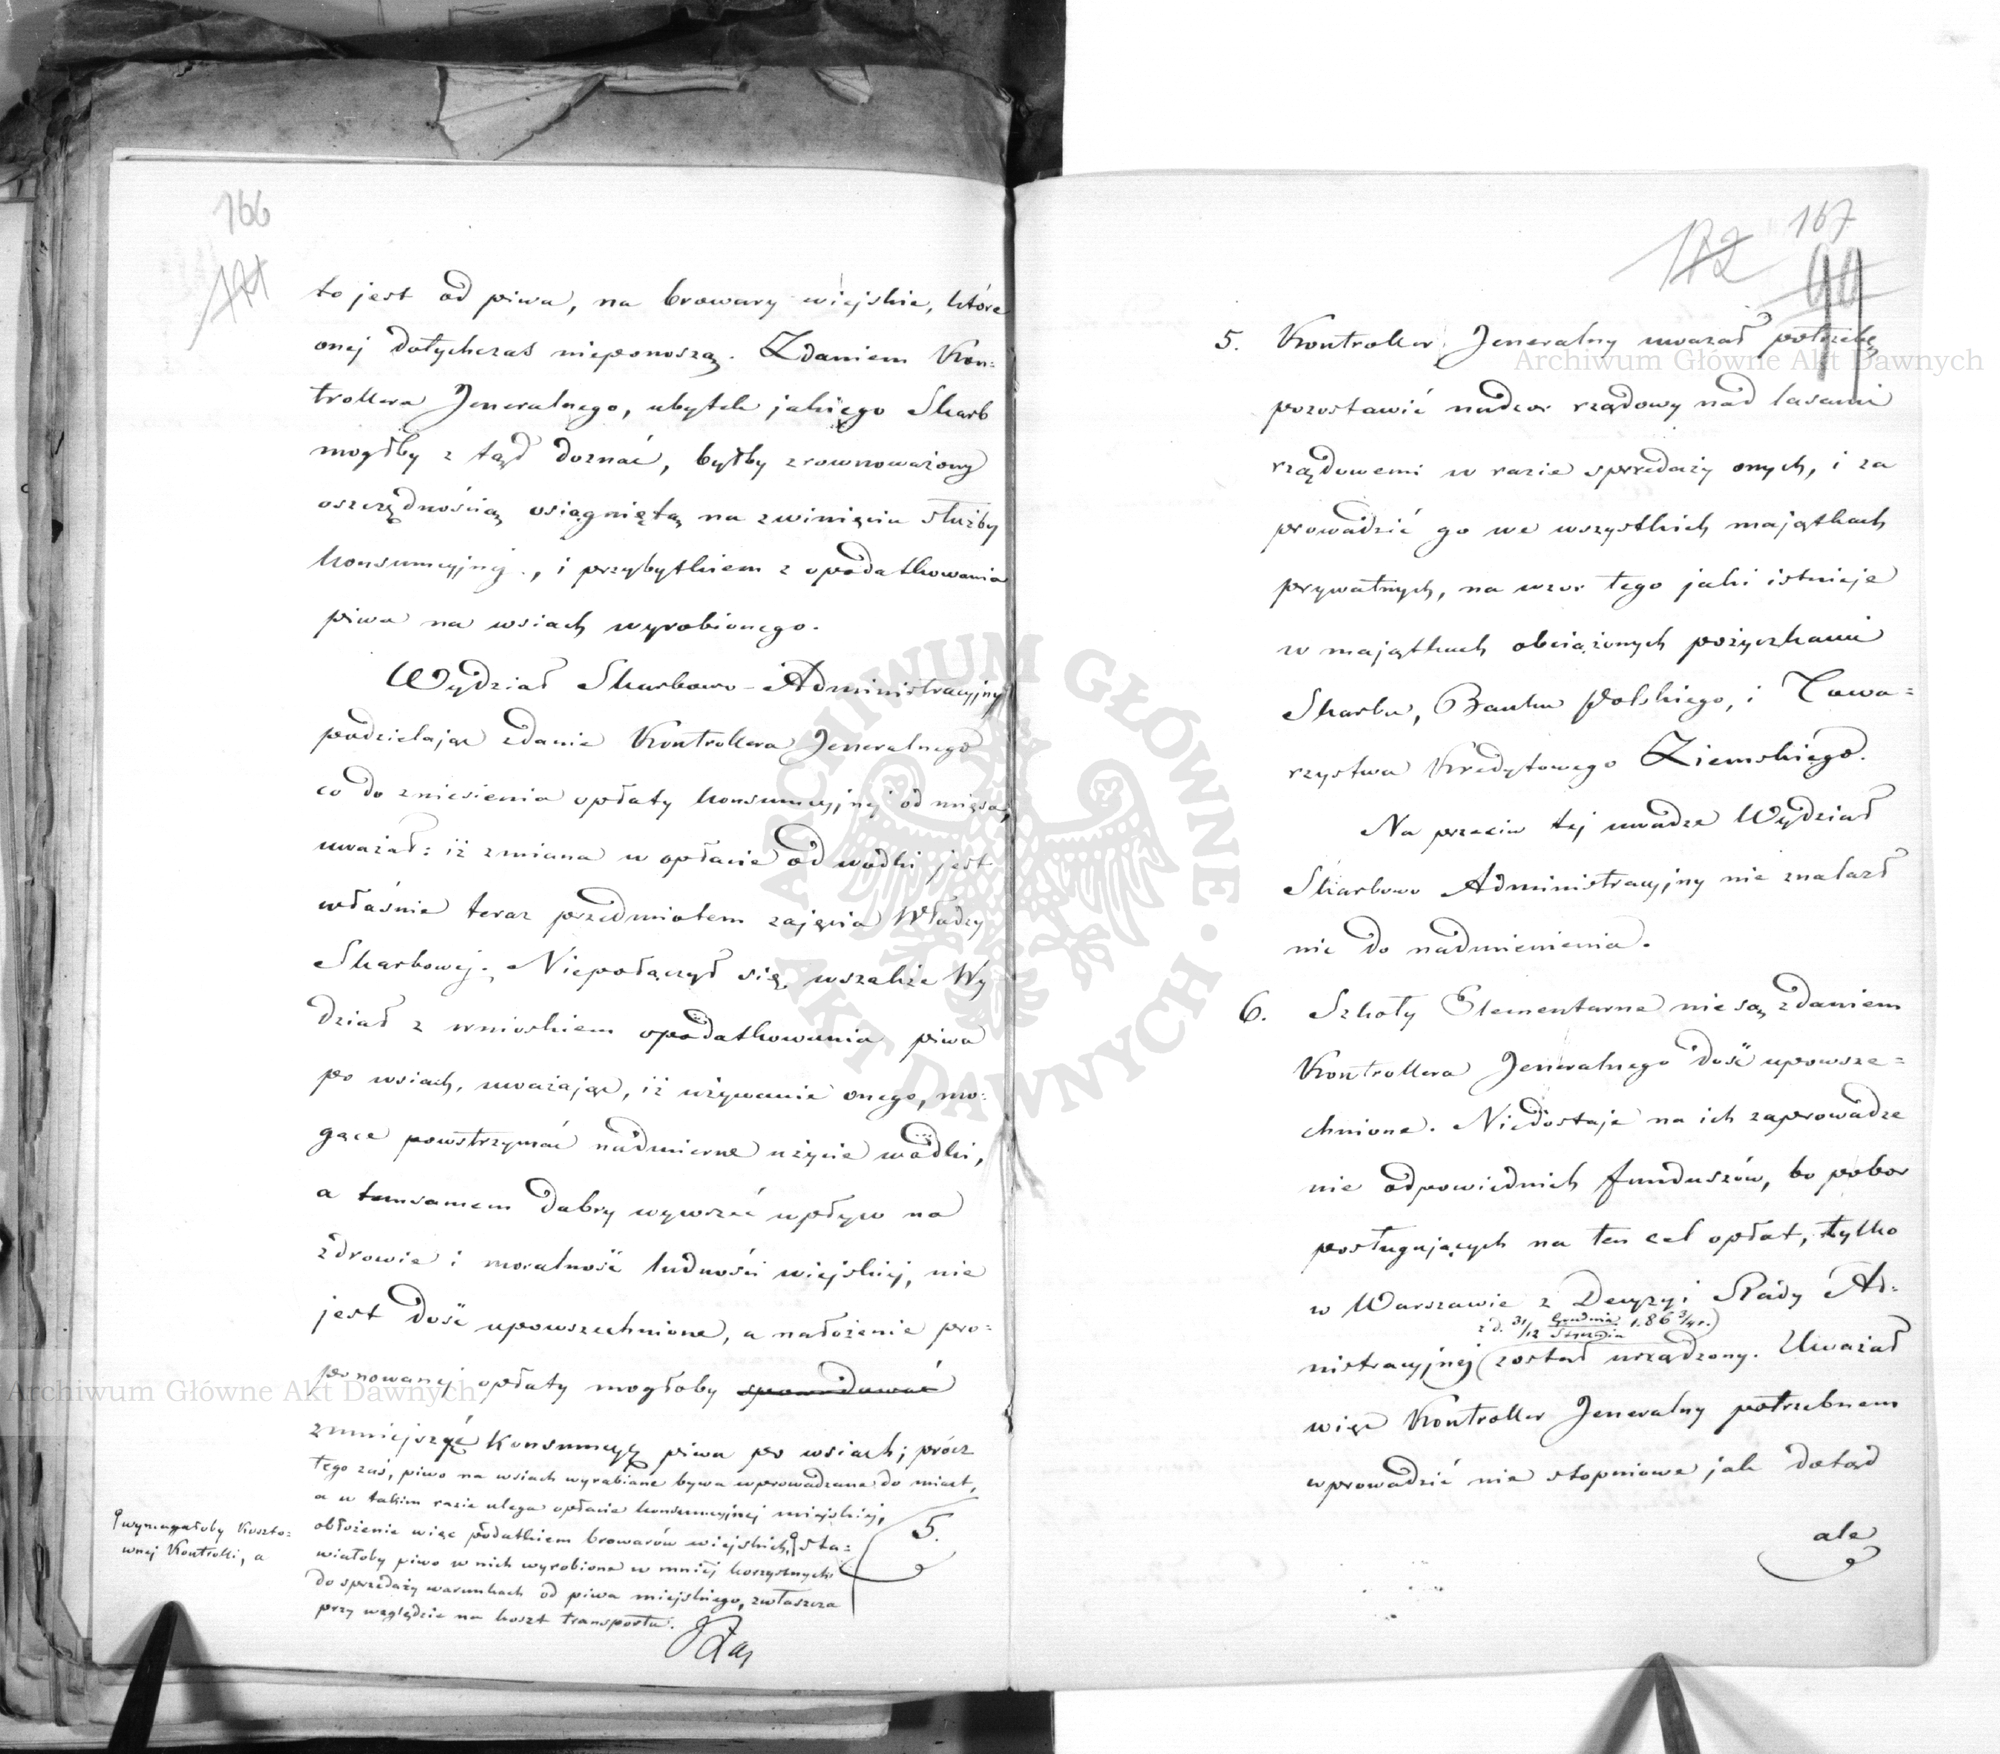 166
171
to jest od piwa, na browary wiejskie, które
onej dotychczas nieponoszą. Zdaniem Kon=
trollera Jeneralnego, ubytek jakiego Skarb
mógłby z tąd doznać, byłby zrownoważony
oszczędnością osiągniętą na zwinięciu służby
konsumcyjnej, i przybytkiem z opodatkowania
piwa na wsiach wyrobionego.
Wydział Skarbowo-Administracyjny
podzielając zdanie Kontrollera Jeneralnego
co do zniesienia opłaty konsumcyjnej od mięsa,
uważał: iż zmiana w opłacie od wódki jest
właśnie teraz przedmiotem zajęcia Władzy
Skarbowej. Niepołączył się wszakże Wy
dział z wnioskiem opodatkowania piwa
po wsiach, uważając, iż używanie onego, mo=
gące powstrzymać nadmierne użycie wódki,
a temsamem dobry wywrzeć wpływ na
zdrowie i moralność ludności wiejskiej, nie
jest dość upowszechnione, a nałożenie pro=
ponowanej opłaty mogłoby
zmniejszyć konsumcyę piwa po wsiach; prócz
tego zaś, piwo na wsiach wyrabiane bywa wprowadzane do miast,
a w takim razie ulega opłacie konsumcyjnej miejskiej,
obłożenie więc podatkiem browarów wiejskich, sta=
wiałoby piwo w nich wyrobione w mniej korzystnych
do sprzedaży warunkach od piwa miejskiego, zwłaszcza
przy względzie na koszt transportu.
wymagałoby koszto=
wnej Kontrolli, a
5.
167
172
5. Kontroller Jeneralny uważał potrzebę
pozostawić nadzor rządowy nad lasami
rządowemi w razie sprzedaży onych, i za
prowadzić go we wszystkich majątkach
prywatnych, na wzor tego jaki istnieje
w majątkach obciążonych pożyczkami
Skarbu, Banku Polskiego, i Towa=
rzystwa Kredytowego Ziemskiego.
Na przeciw tej uwadze Wydział
Skarbowo Administracyjny nie znalazł
nic do nadmienienia.
6. Szkoły Elementarne nie są zdaniem
Kontrollera Jeneralnego dość upowsze=
chnione. Niedostaje na ich zaprowadze
nie odpowiednich funduszów, bo pobor
posługujących na ten cel opłat, tylko
w Warszawie z Decyzyi Rady Ad=
z d. 31/12 Grudnia Stycznia 186 3/4 r.
nistracyjnej został urządzony. Uważał
więc Kontroller Jeneralny potrzebnem
wprowadzić nie stopniowo jak dotąd
ale
Archiwum Główne Akt Dawnych
Archiwum Główne Akt Dawnych
ARCHIWUM GŁÓWNE · AKT DAWNYCH ·